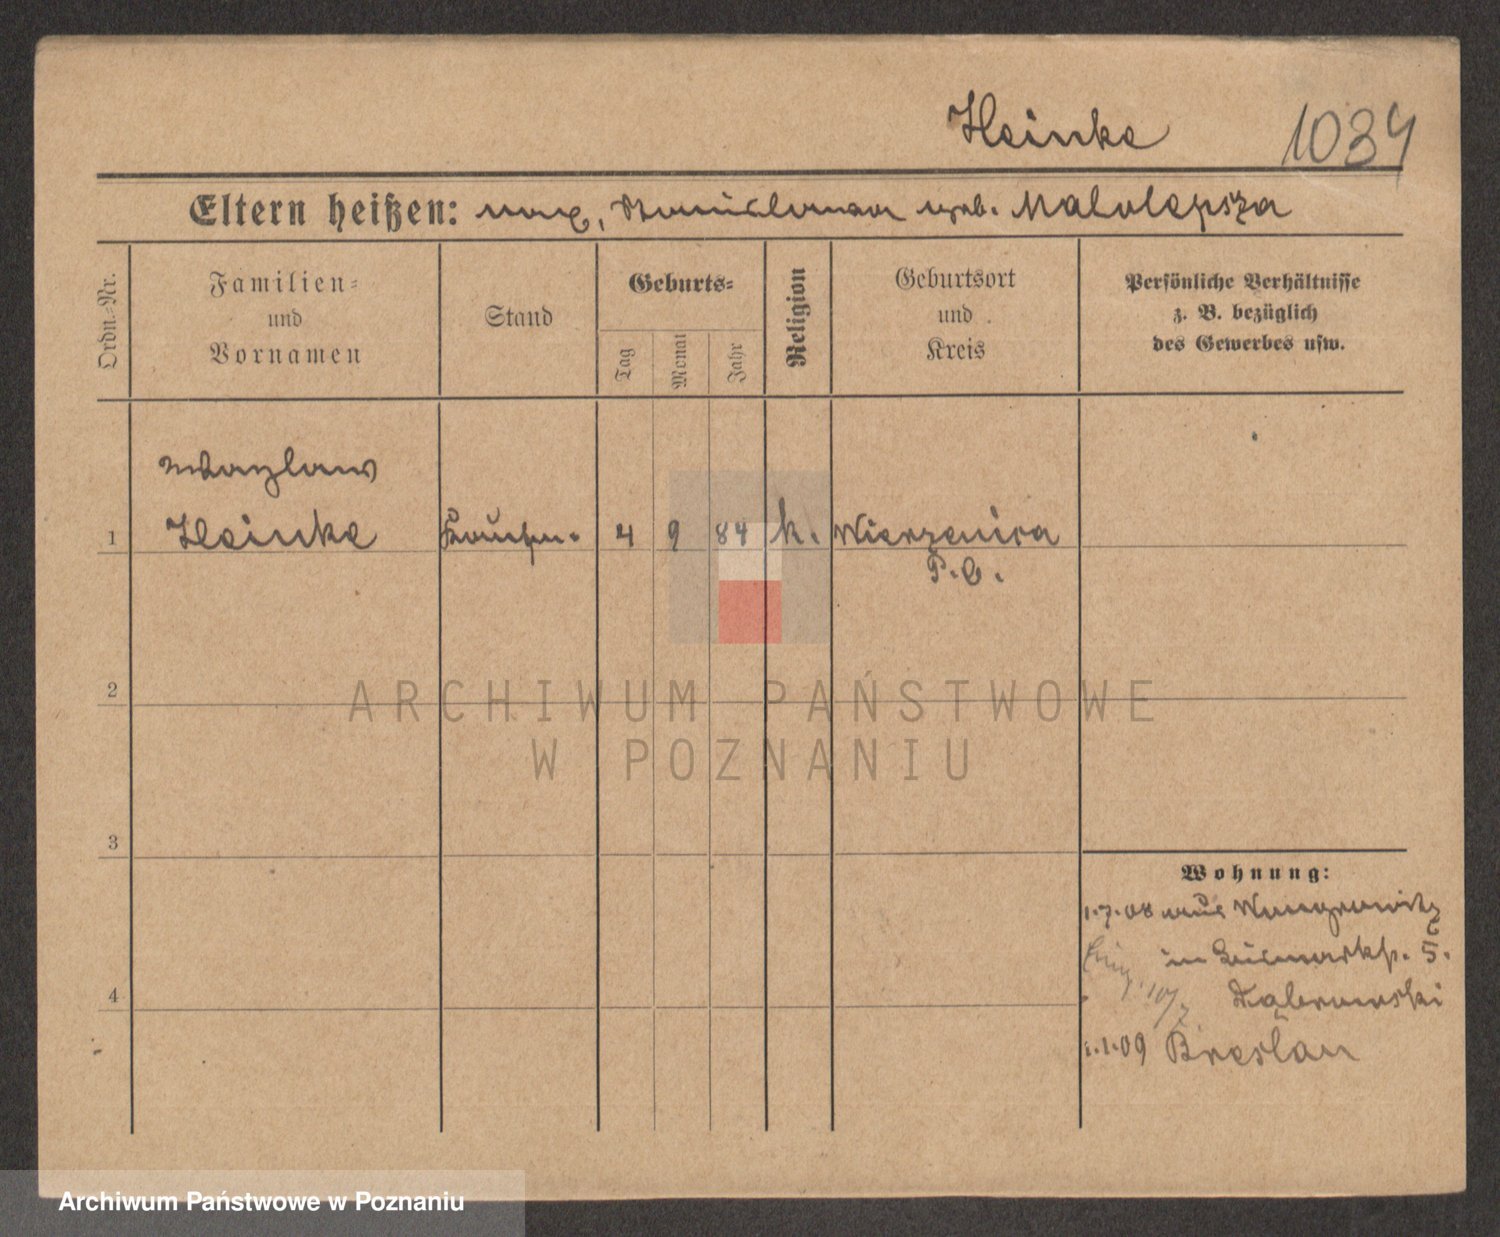 Heinke 1034
Eltern heißen: Max, Stanislawa geb. Malolepsza
Ordn.-Nr.
Familien-
und
Vornamen
Stand
Geburts-
Tag
Monat
Jahr
Religion
Geburtsort
und
Kreis
Persönliche Verhältnisse
z. B. bezüglich
des Gewerbes usw.
Wazlaw
1 Heinke Kaufm. 4 9 84 k. Wierzenica
P. O.
2
3
4
Wohnung:
1.7.08 aus Wongrowitz
in Bismarkstr. 5.
10/7 Dąbrowski
1.1.09 Breslau
ARCHIWUM PAŃSTWOWE
W POZNANIU
Archiwum Państwowe w Poznaniu